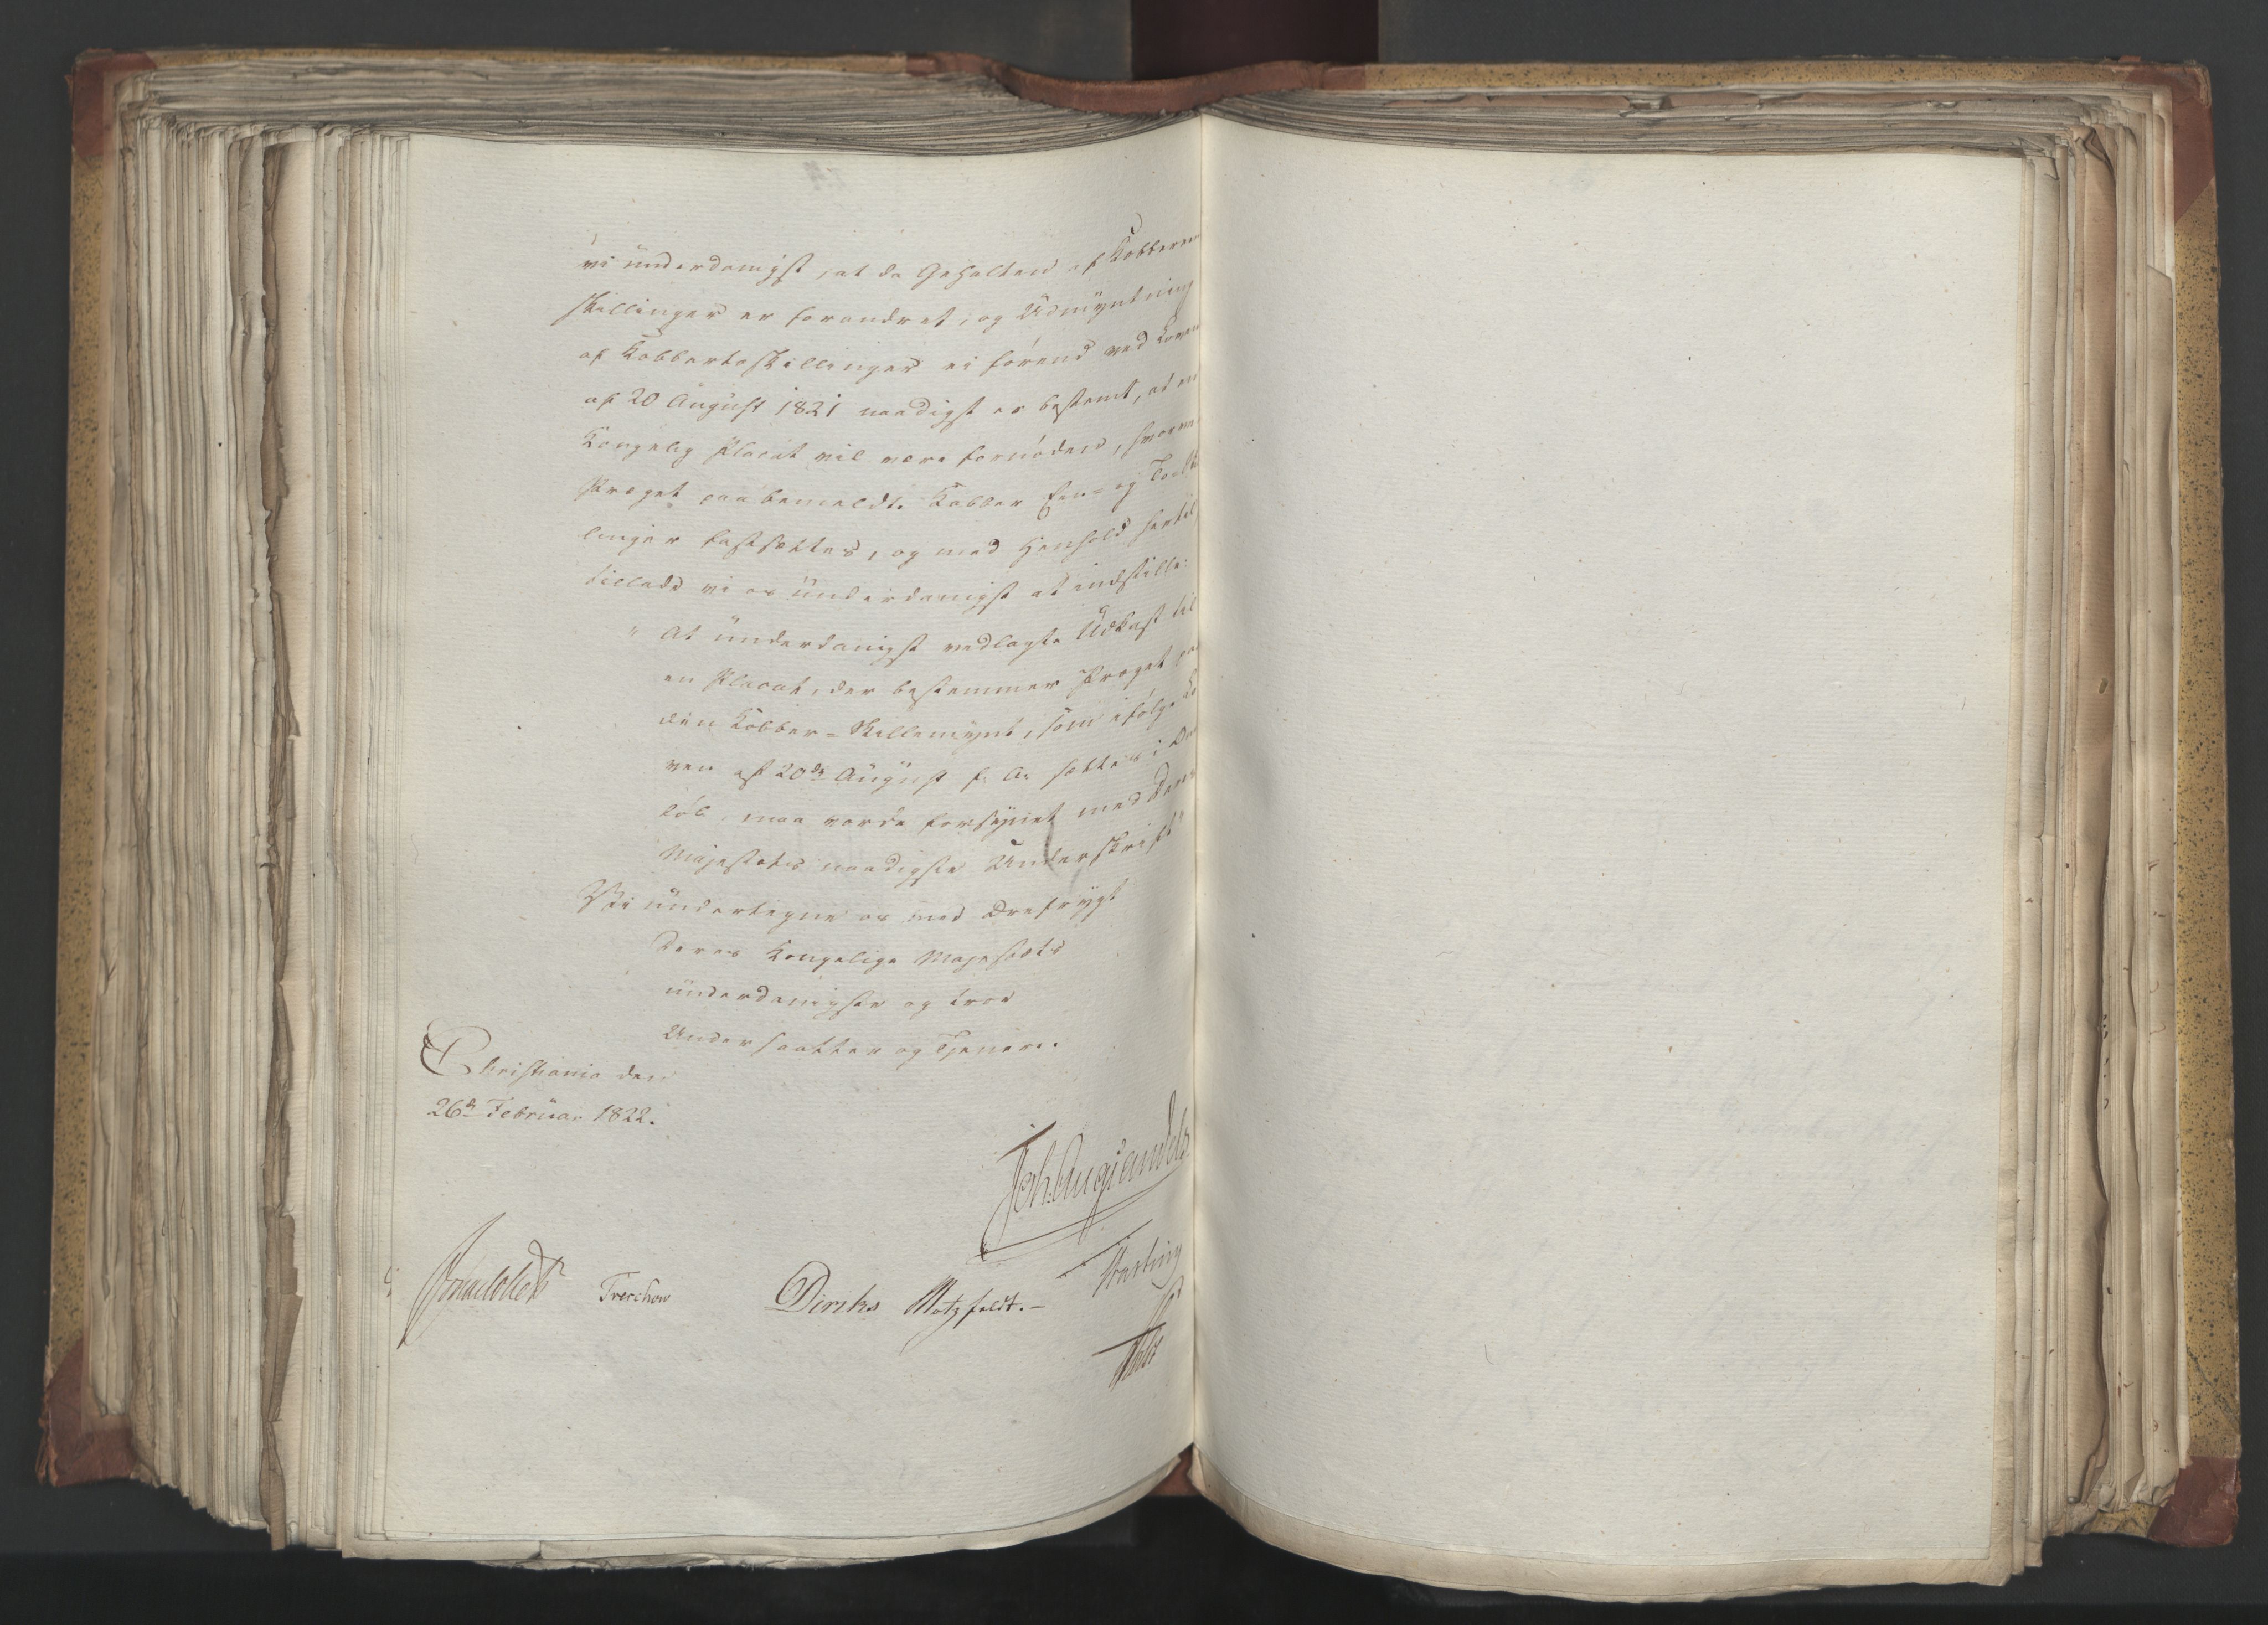 vi underdanigst, at da Gehalten af Kobberen
skillinger er forandret, og Udmyntning
af Kobbertoskillinger ei förend ved Loven
af 20 August 1821 naadigst er bestemt, at en
Kongelig Placat vil være fornöden, hvorved
Præget paa bemeldte Kobber Een- og Toskil
linger fastsættes, og med Henhold hertil
tillade vi os underdanigst at indstille:
" At underdanigst vedlagte Udkast til
en Placat, der bestemmer Præget paa
den Kobber-Skillemynt, som ifölge Lo
ven af 20de August f. A. sættes i Om
löb, maa vorde forsynet med Deres
Majestæts naadigste Underskrift"
Vi undertegne os med Ærefrygt
Deres Kongelige Majestæts
underdanigste og troe
Undersaatter og Tjenere.
Christiania den
26de Februar 1822.
Joh. Aug. Sandels
Sommerhielm Treschow Diriks Motzfeldt.- Fasting
Holst